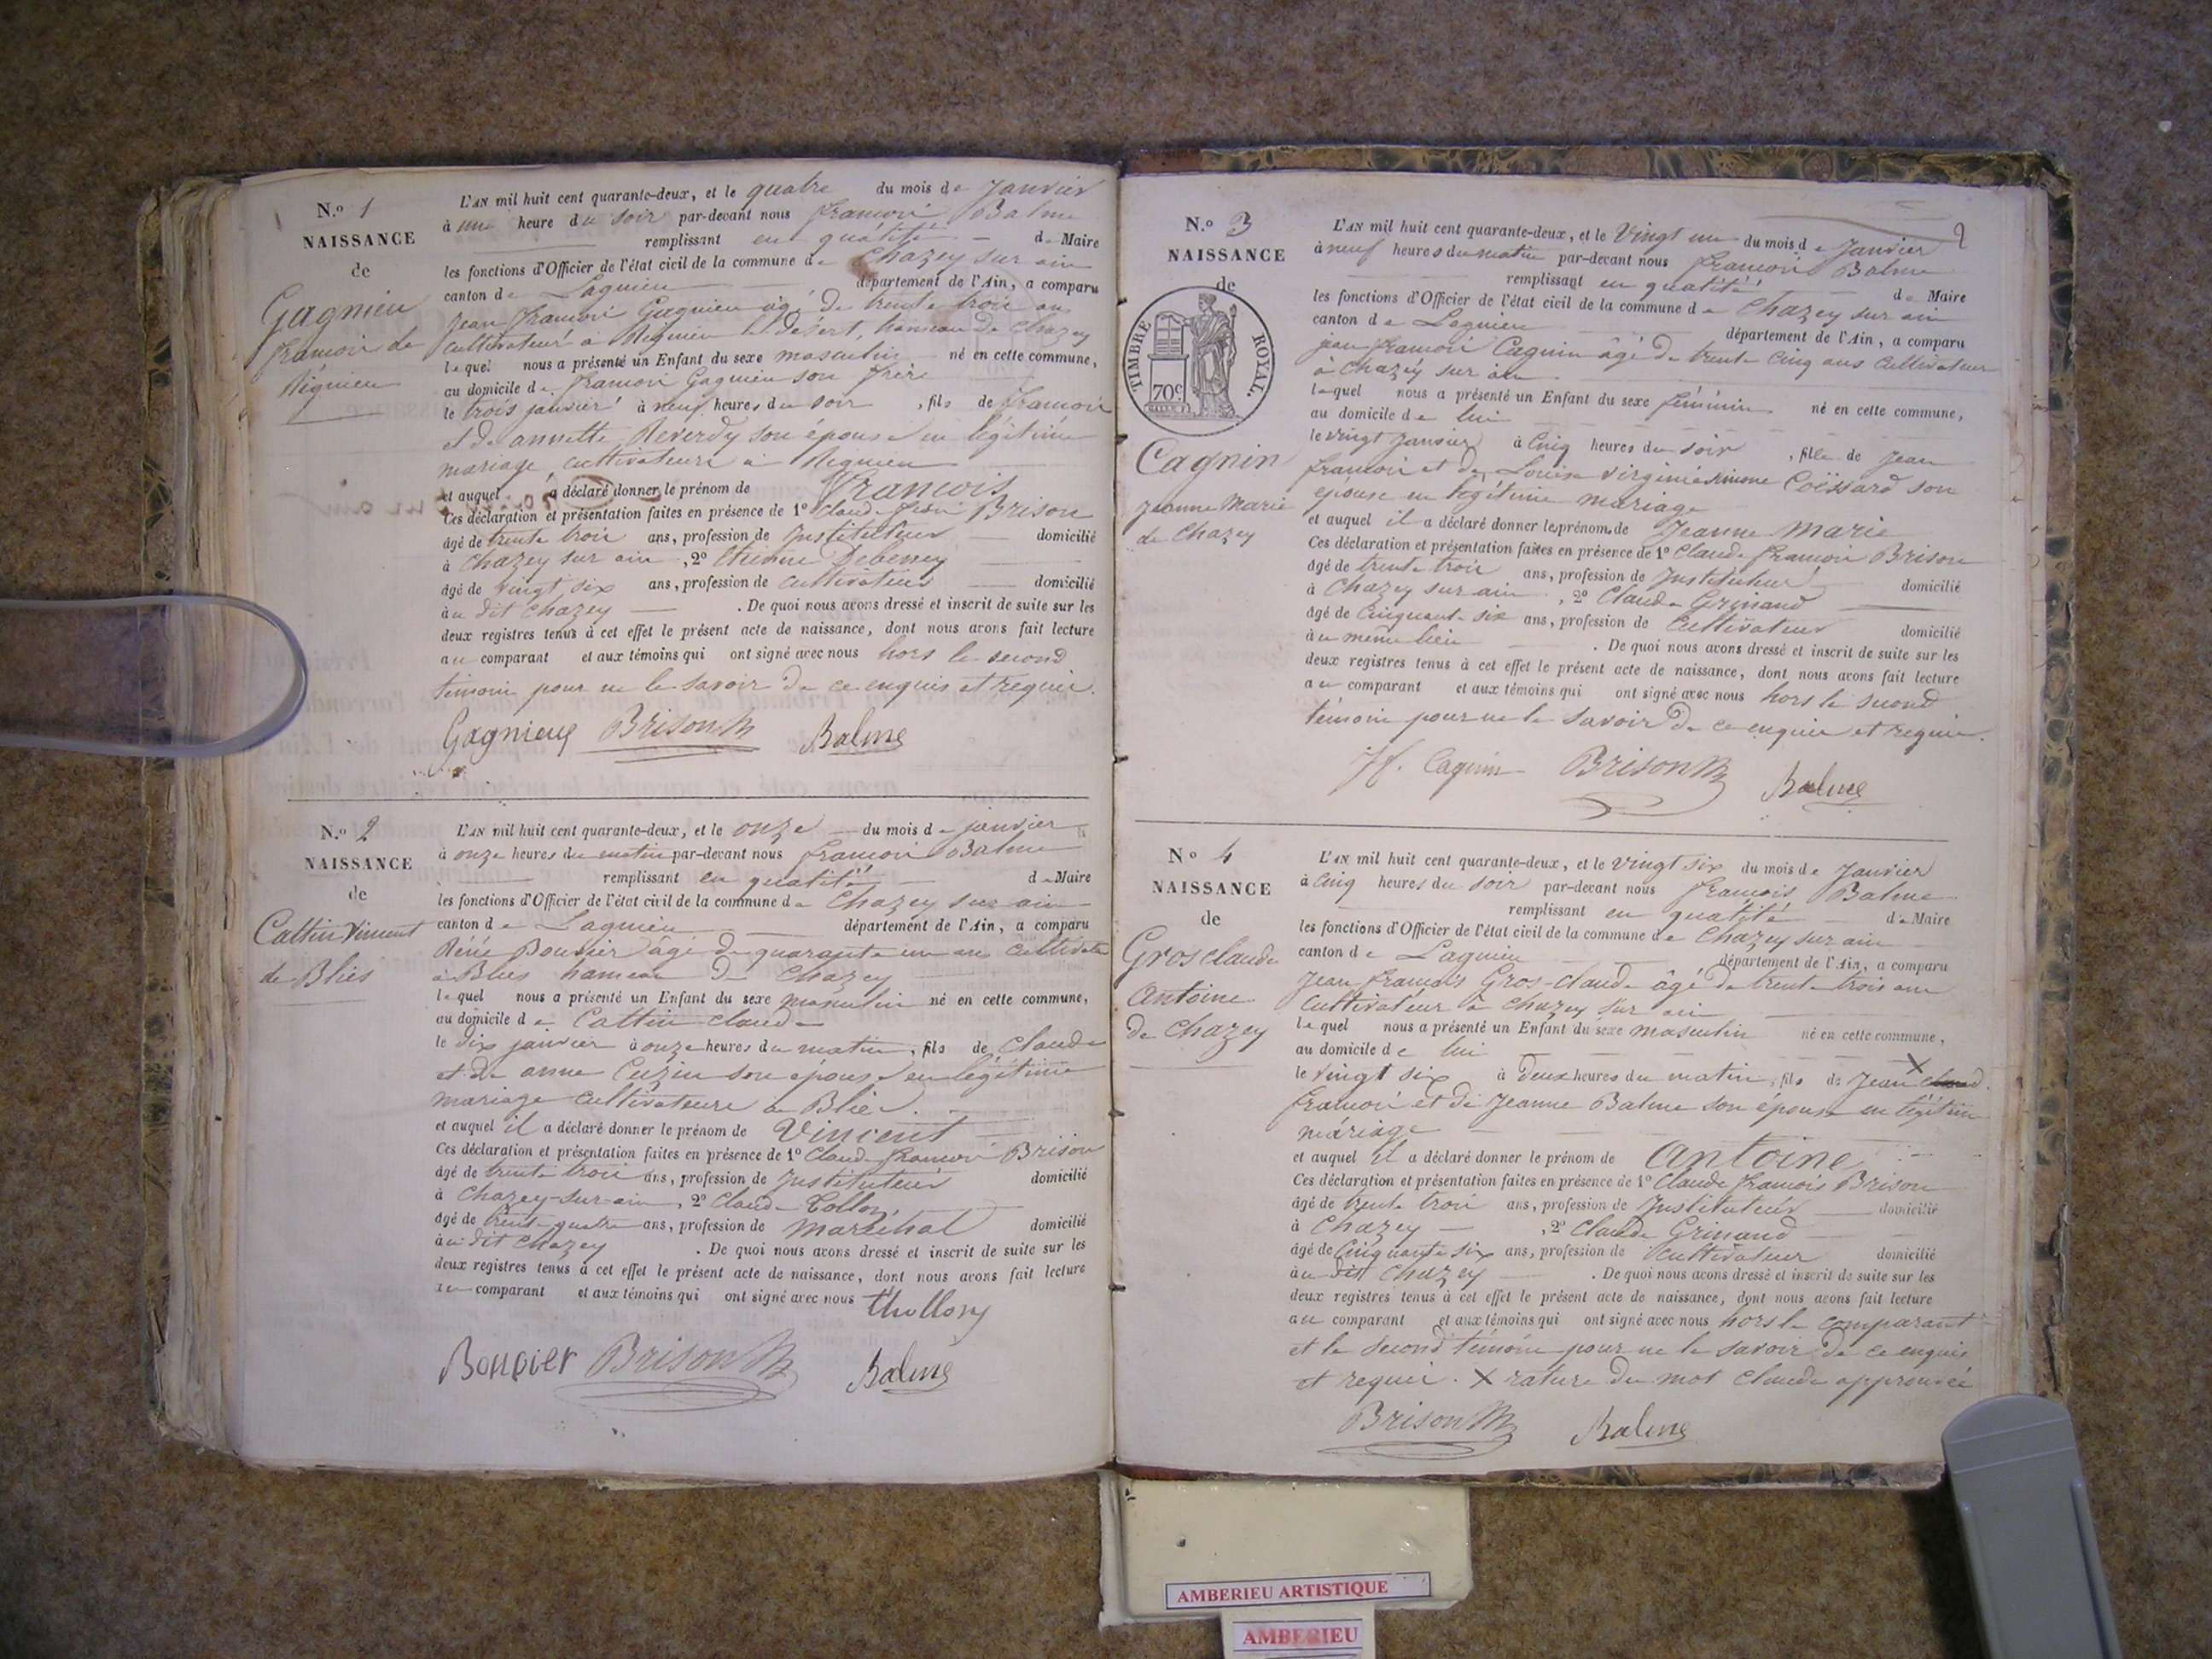 N.º 1
NAISSANCE
de
Gagnieu
françois de
Rignieu
L'AN mil huit cent quarante-deux, et le quatre du mois de Janvier
à une heure du soir par-devant nous françois Balme
remplissant en qualité de Maire
les fonctions d'Officier de l'état civil de la commune de Chazey sur ain
canton de Lagnieu département de l'Ain, a comparu
Jean françois Gagnieu âgé de trente trois ans
cultivateur à Rignieu le désert, hameau de Chazey
lequel nous a présenté un Enfant du sexe masculin né en cette commune,
au domicile de françois Gagnieu son frère
le trois janvier à neuf heures du soir, fils de françois
et de annette Reverdy son épouse en légitime
mariage, cultivateurs à Rignieu
et auquel a déclaré donner le prénom de François
Ces déclaration et présentation faites en présence de 1º Claude Brison
âgé de trente trois ans, profession de Instituteur domicilié
à Chazey sur ain, 2º Etienne Debeney
âgé de vingt six ans, profession de cultivateur domicilié
au dit Chazey. De quoi nous avons dressé et inscrit de suite sur les
deux registres tenus à cet effet le présent acte de naissance, dont nous avons fait lecture
au comparant et aux témoins qui ont signé avec nous hors le second
témoin pour ne le savoir de ce enquis et requis.
Gagnieux Brison Balme
N.º 2
NAISSANCE
de
Cattin Vincent
de Bliès
L'AN mil huit cent quarante-deux, et le onze du mois de janvier
à onze heures du matin par-devant nous françois Balme
remplissant en qualité de Maire
les fonctions d'Officier de l'état civil de la commune de Chazey sur ain
canton de Lagnieu département de l'Ain, a comparu
Réné Bouvier âgé de quarante un ans cultivate
à Blies hameau de Chazey
lequel nous a présenté un Enfant du sexe masculin né en cette commune,
au domicile de Cattin claude
le dix janvier à onze heures du matin, fils de Claude
et de anne Cuzin son épouse en légitime
mariage cultivateurs à Blies.
et auquel il a déclaré donner le prénom de Vincent
Ces déclaration et présentation faites en présence de 1º Claude françois Brison
âgé de trente trois ans, profession de Instituteur domicilié
à Chazey-sur-ain, 2º Claude Tollon
âgé de trente quatre ans, profession de maréchal domicilié
au dit Chazey. De quoi nous avons dressé et inscrit de suite sur les
deux registres tenus à cet effet le présent acte de naissance, dont nous avons fait lecture
au comparant et aux témoins qui ont signé avec nous Thollon
Bouvier Brison Balme
2
N.º 3
NAISSANCE
de
TIMBRE ROYAL.
70c
Cagnin
jeanne Marie
de Chazey
L'AN mil huit cent quarante-deux, et le vingt un du mois de Janvier
à neuf heures du matin par-devant nous françois Balme
remplissant en qualité de Maire
les fonctions d'Officier de l'état civil de la commune de Chazey sur ain
canton de Lagnieu département de l'Ain, a comparu
jean françois Cagnin âgé de trente cinq ans cultivateur
à Chazey sur ain
lequel nous a présenté un Enfant du sexe féminin né en cette commune,
au domicile de lui
le vingt Janvier à cinq heures du soir, fille de Jean
françois et de Louise virginie Coëssard son
épouse en légitime mariage
et auquel il a déclaré donner les prénoms de Jeanne Marie
Ces déclaration et présentation faites en présence de 1º Claude françois Brison
âgé de trente trois ans, profession de Instituteur domicilié
à Chazey sur ain, 2º Claude Grinand
âgé de Cinquante six ans, profession de Cultivateur domicilié
au même lieu. De quoi nous avons dressé et inscrit de suite sur les
deux registres tenus à cet effet le présent acte de naissance, dont nous avons fait lecture
au comparant et aux témoins qui ont signé avec nous hors le second
témoin pour ne le savoir de ce enquis et requis.
Cagnin Brison Balme
Nº 4
NAISSANCE
de
Grosclaude
antoine
de Chazey
L'AN mil huit cent quarante-deux, et le vingt six du mois de Janvier
à cinq heures du soir par-devant nous françois Balme
remplissant en qualité de Maire
les fonctions d'Officier de l'état civil de la commune de Chazey sur ain
canton de Lagnieu département de l'Ain, a comparu
Jean françois Gros-claude âgé de trente trois ans
cultivateur à Chazey sur ain
lequel nous a présenté un Enfant du sexe masculin né en cette commune,
au domicile de lui
le vingt six à deux heures du matin, fils de Jean X claude
françois et de Jeanne Balme son épouse en légitime
mariage
et auquel il a déclaré donner le prénom de antoine
Ces déclaration et présentation faites en présence de 1º Claude françois Brison
âgé de trente trois ans, profession de Instituteur domicilié
à Chazey, 2º Claude Grinand
âgé de Cinquante six ans, profession de Cultivateur domicilié
au dit Chazey. De quoi nous avons dressé et inscrit de suite sur les
deux registres tenus à cet effet le présent acte de naissance, dont nous avons fait lecture
au comparant et aux témoins qui ont signé avec nous hors le comparant
et le second témoin pour ne le savoir de ce enquis
et requis. X rature du mot Claude approuvée
Brison Balme
AMBERIEU ARTISTIQUE
AMBERIEU